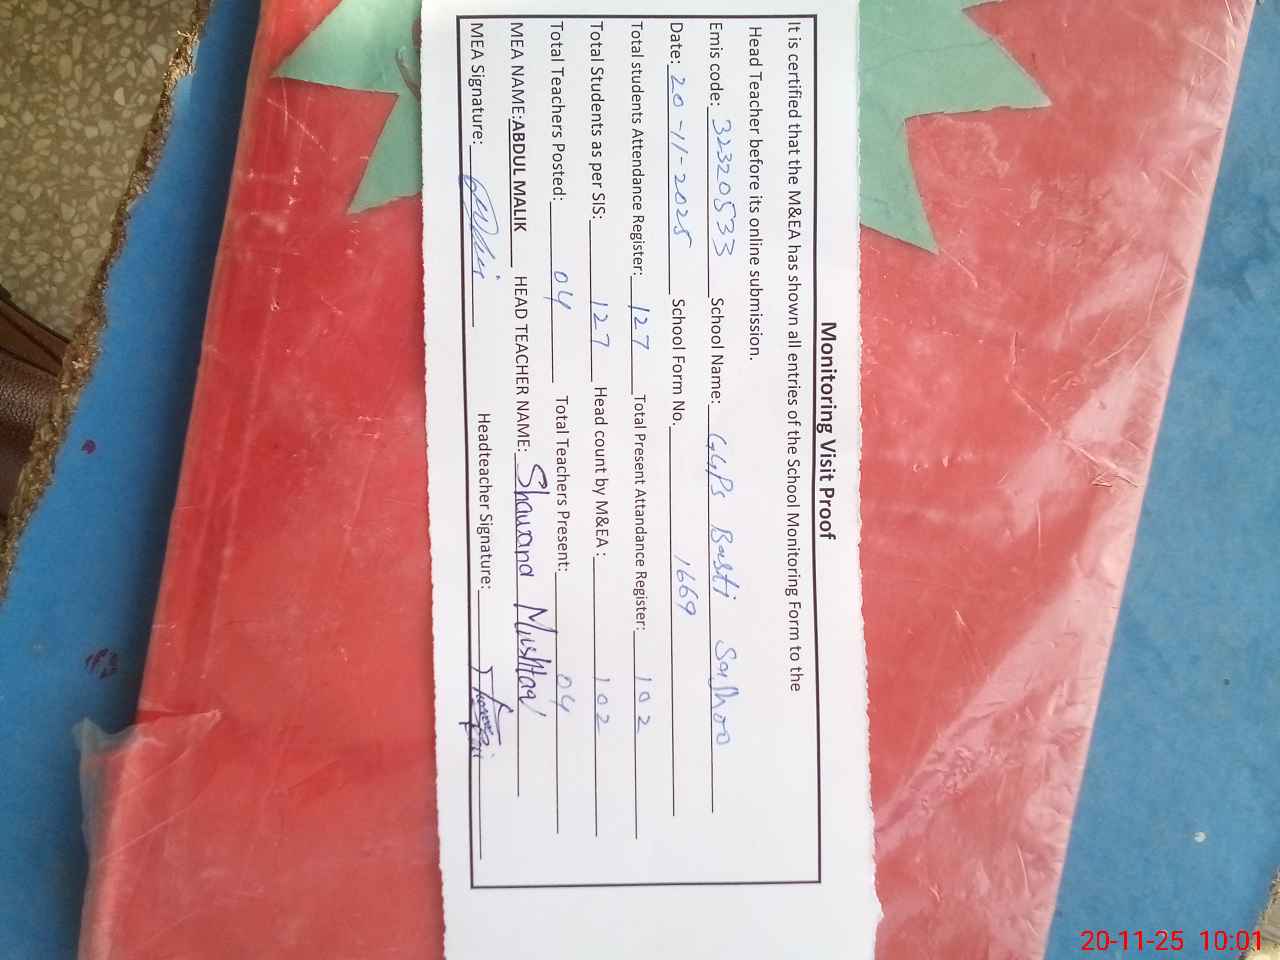 Monitoring Visit Proof
It is certified that the M&EA has shown all entries of the School Monitoring Form to the
Head Teacher before its online submission.
Emis code: 32320533 School Name: GGPS Basti
Date: 20-11-2025 School Form No. 1669
Total students Attendance Register: 127 Total Present Attandance Register: 102
Total Students as per SIS: 127 Head count by M&EA : 102
Total Teachers Posted: 04 Total Teachers Present: 04
MEA NAME: ABDUL MALIK HEAD TEACHER NAME: Mushtaq
MEA Signature: Headteacher Signature:
20-11-25 10:01